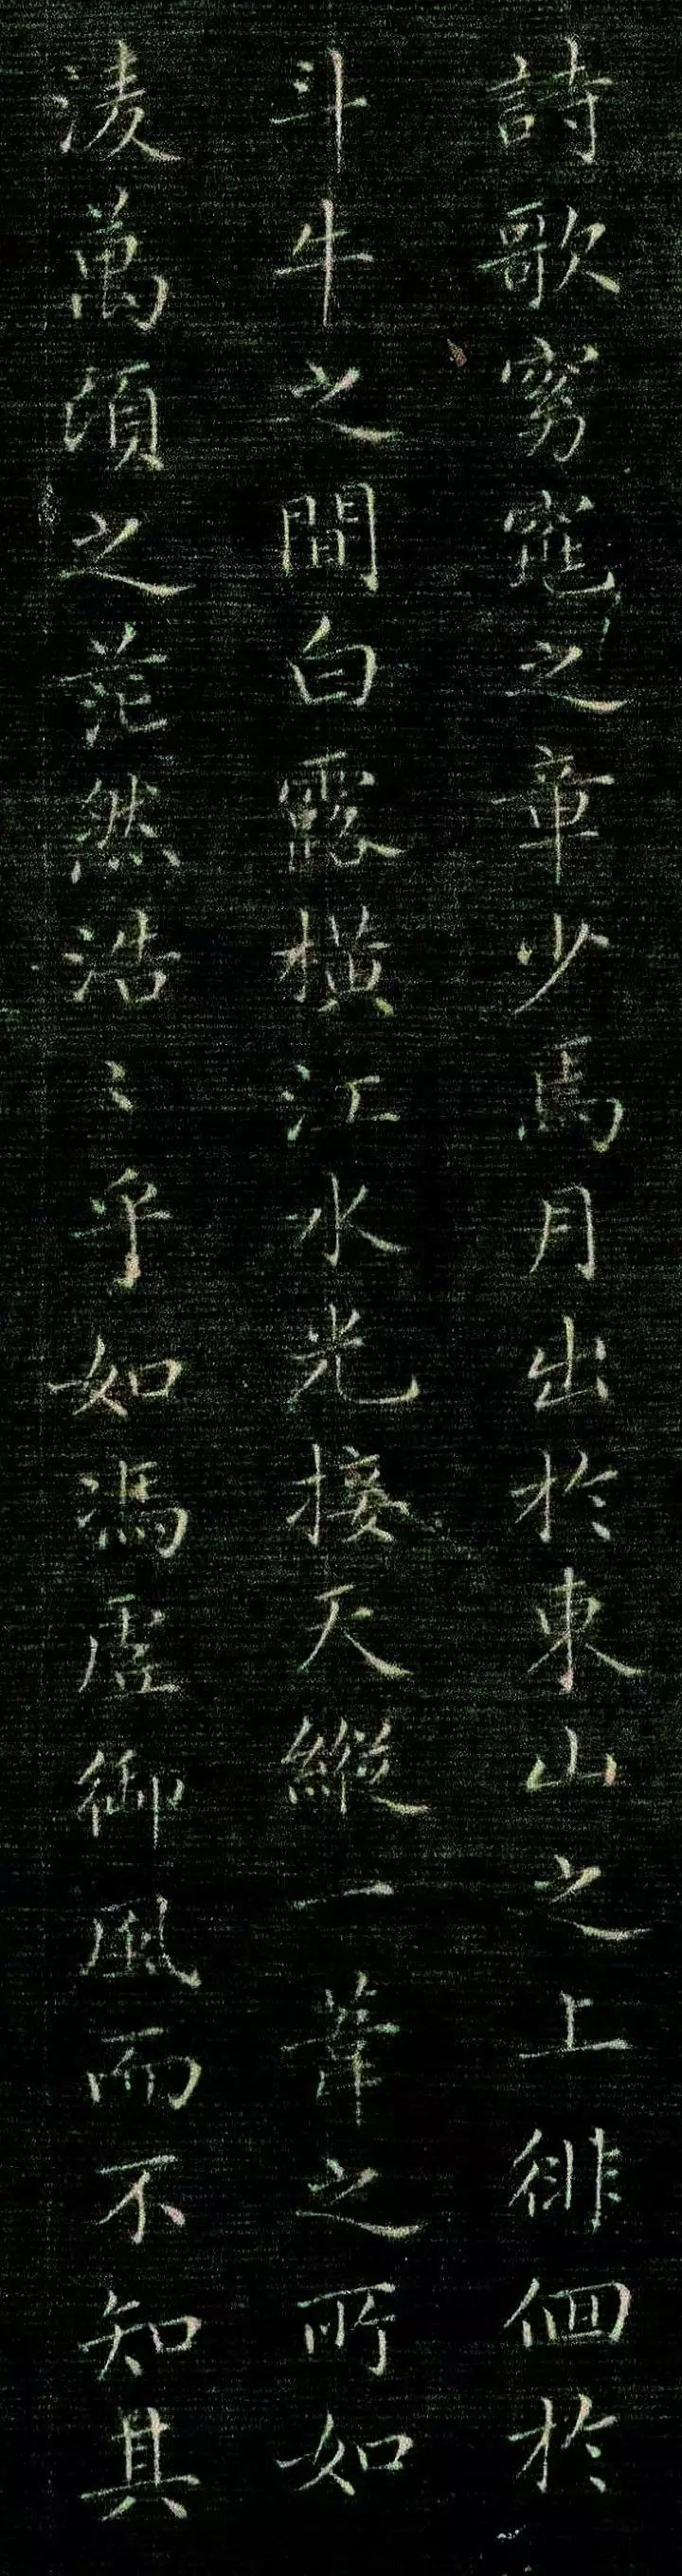 詩歌窈窕之章少焉月出於東山之上徘徊於
斗牛之間白露橫江水光接天縱一葦之所如
凌萬頃之茫然浩〻乎如馮虛御風而不知其